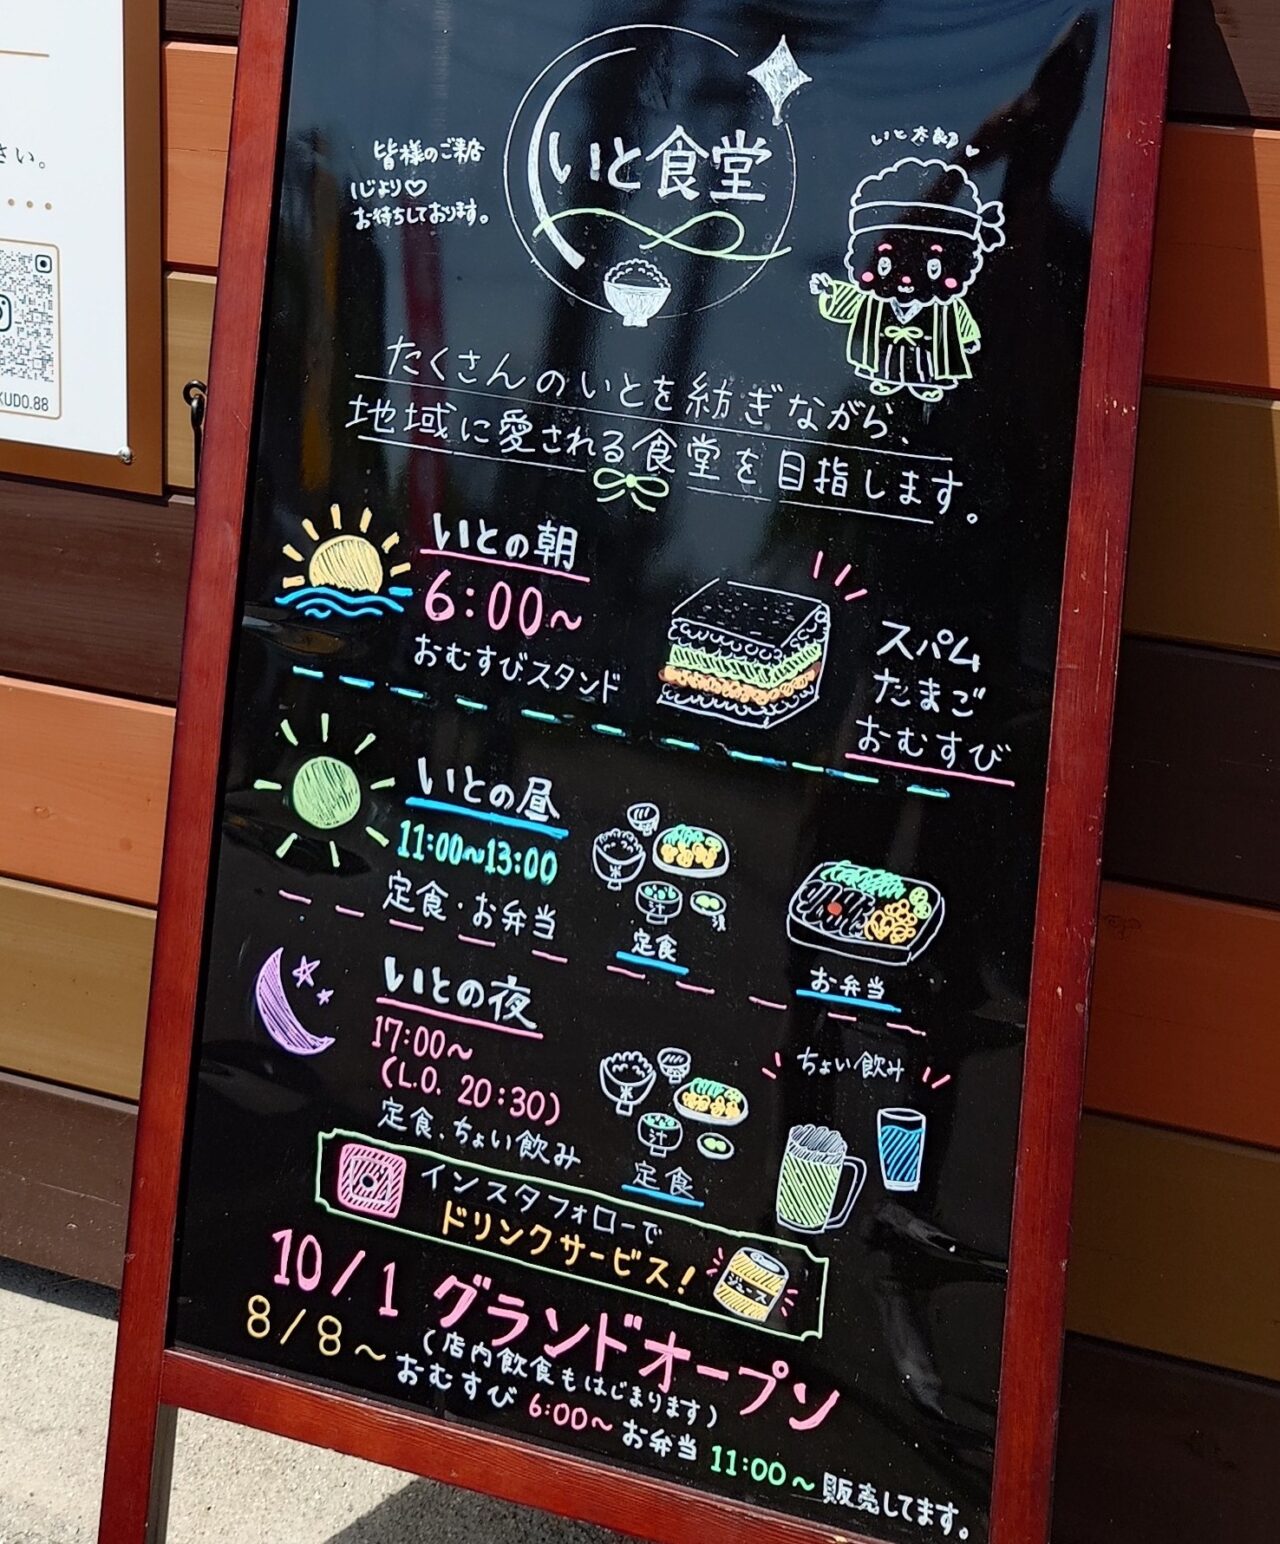 さい。
KUDO.88
いと食堂
皆様のご来店
心より♡
お待ちしております。
いと太郎♥
たくさんのいとを紡ぎながら、
地域に愛される食堂を目指します。
いとの朝
6:00~
おむすびスタンド
スパム
たまご
おむすび
いとの昼
11:00~13:00
定食・お弁当
汁
漬
定食
お弁当
いとの夜
17:00~
(L.O. 20:30)
定食、ちょい飲み
米
汁
定食
ちょい飲み
インスタフォローで
ドリンクサービス!
ジュース
10/1 グランドオープン
(店内飲食もはじまります)
8/8~
おむすび 6:00~ お弁当 11:00~ 販売してます。